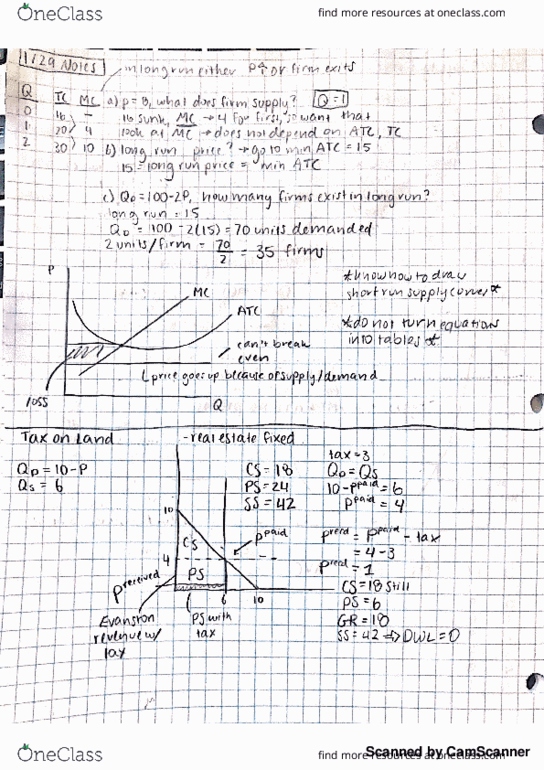 OneClass
find more resources at oneclass.com
1/29 Notes
in long run either P↑ or firm exits
Q TC MC
0 16 –
1 20 > 4
2 30 > 10
a) p = 8, what does firm supply? Q=1
16 sunk, MC → 4 for first, so want that
look at MC → does not depend on ATC, TC
b) long run price? → go to min ATC = 15
15 = long run price = min ATC
c) QD = 100-2P, how many firms exist in long run?
long run = 15
QD = 100 - 2(15) = 70 units demanded
2 units/firm = 70/2 = 35 firms
P
MC
ATC
can't break even
price goes up because of supply/demand
loss
Q
*know how to draw
short run supply curves*
*do not turn equations
into tables*
Tax on Land
- real estate fixed
QD = 10-P
QS = 6
CS = 18
PS = 24
SS = 42
tax = 3
QD = QS
10 - Ppaid = 6
Ppaid = 4
Precd = Ppaid - tax
= 4-3
Precd = 1
CS = 18 still
PS = 6
GR = 18
SS = 42 => DWL = 0
10
CS
Ppaid
4
PS
Preceived
6
10
Evanston
revenue w/
tax
PS with
tax
OneClass
find more resources at oneclass.com
Scanned by CamScanner